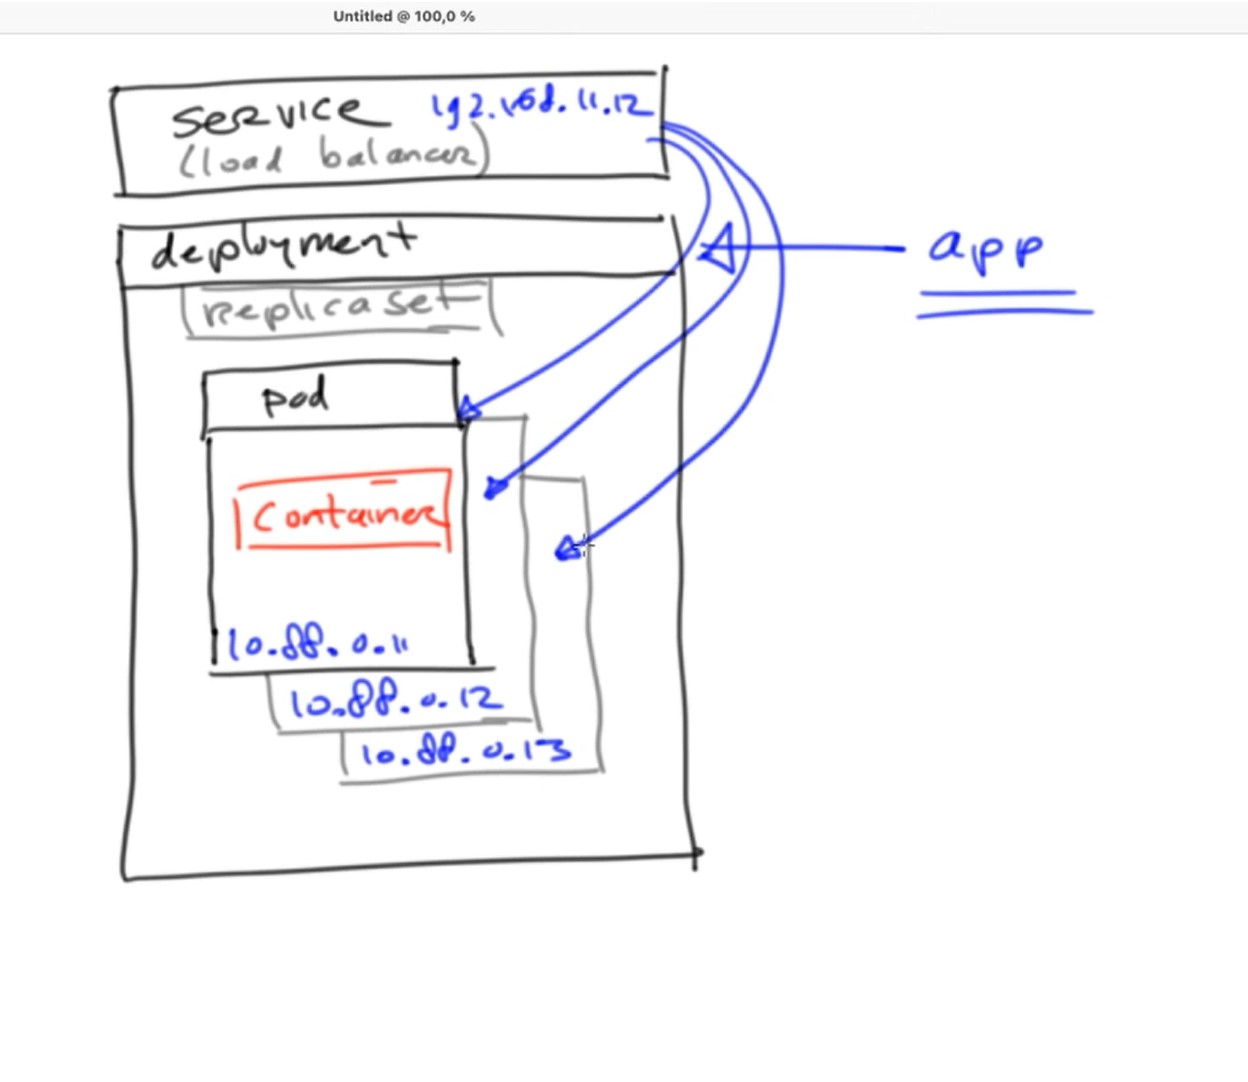 Untitled @ 100,0 %
service 192.168.11.12
(load balancer)
deployment
app
replica set
pod
Container
10.88.0.11
10.88.0.12
10.88.0.13